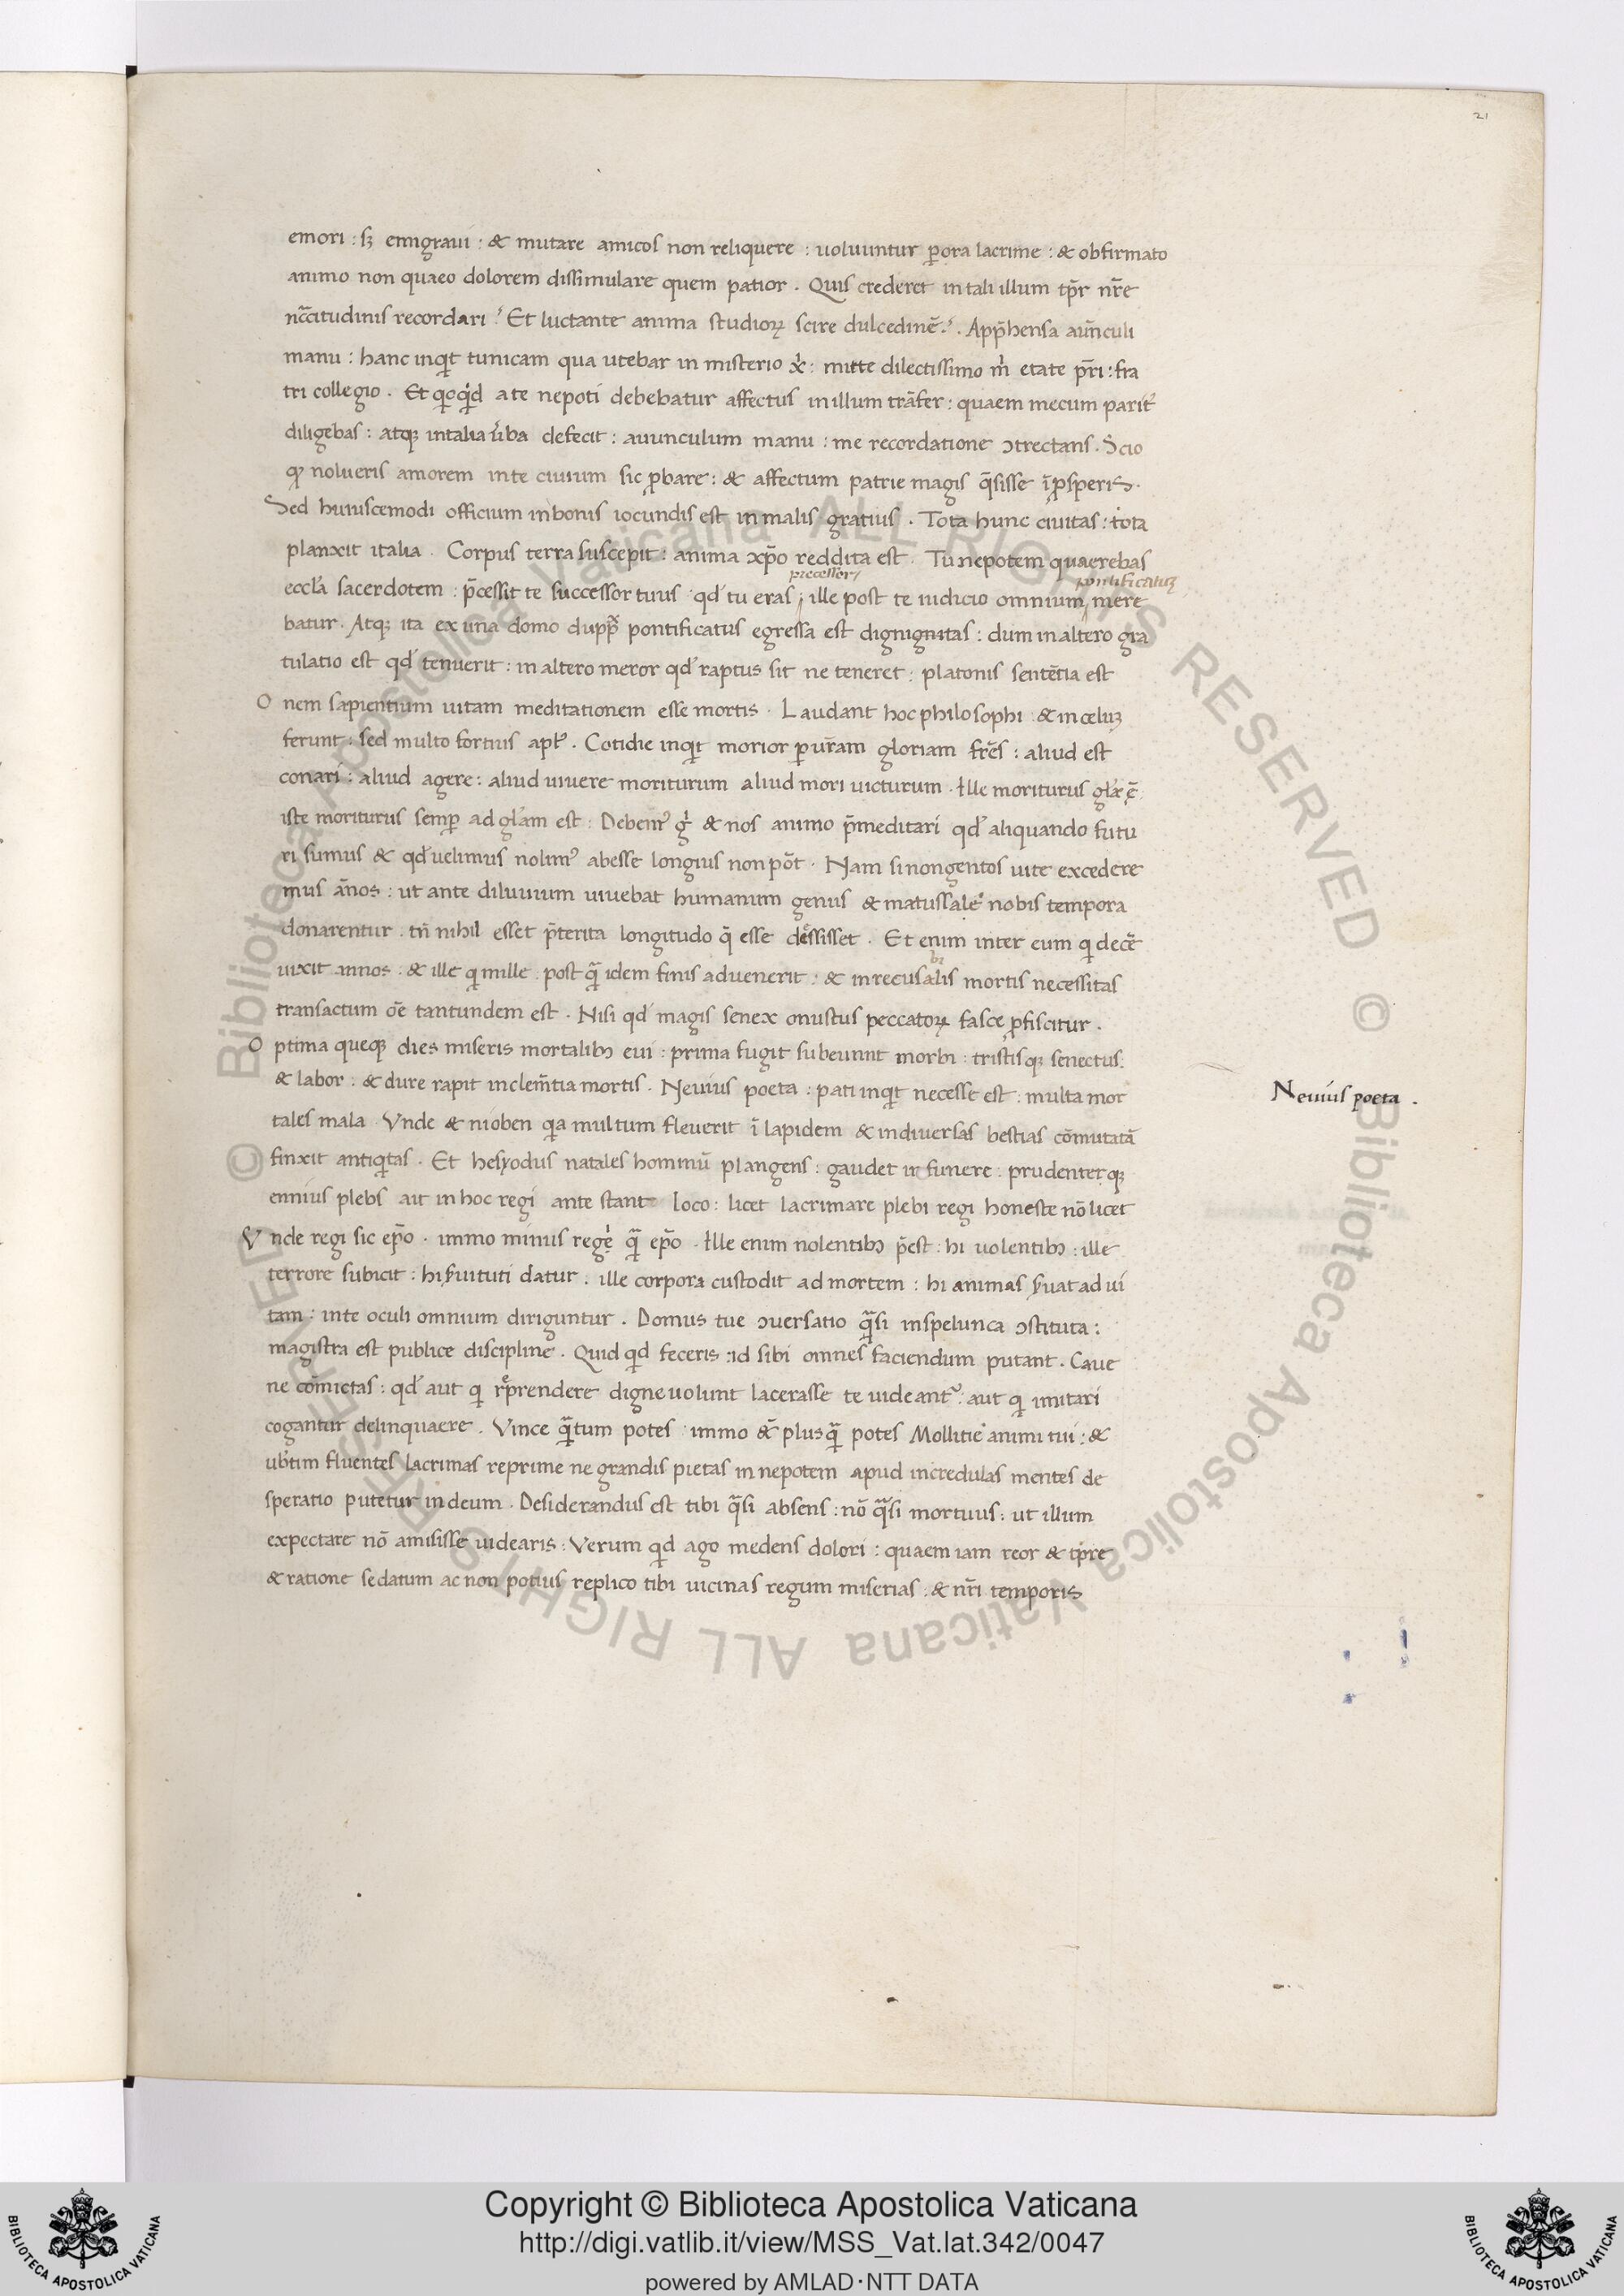 21
emori : sꝫ emigraui : & mutare amicos non reliquere : uoluuntur ꝑ ora lacrime : & obfirmato
animo non quaeo dolorem dissimulare quem patior . Quis crederet in tali illum tp̄r nr̄e
nc̄citudinis recordari ? Et luctante anima studioꝝ scire dulcedinē ? . App̄hensa aun̄culi
manu : hanc inqͥt tunicam qua utebar in misterio xͥ : mitte dilectissimo mͥ etate pr̄i : fra
tri collegio . Et qͥcqͥd a te nepoti debebatur affectus in illum trāsfer : quaem mecum parit᷑
diligebas : atqꝫ in talia u̓ba defecit : auunculum manu : me recordatione ↄtrectans . Scio
ꝙ nolueris amorem in te ciuium sic ꝓbare : & affectum patrie magis q̄sisse ī ꝓsperis .
Sed huiuscemodi officium in bonis iocundis est in malis gratius . Tota hunc ciuitas : tota
planxit italia . Corpus terra suscepit : anima xp̄o reddita est . Tu nepotem quaerebas
precessor pontificatuꝫ
eccl̄a sacerdotem : p̄cessit te successor tuus qd̓ tu eras ; ille post te iudicio omnium mere
batur . Atqꝫ ita ex una domo dupp̄x pontificatus egressa est dignignitas : dum in altero gra
tulatio est qd̓ tenuerit : in altero meror qd̓ raptus sit ne teneret : platonis sentētia est
O nem sapientium uitam meditationem esse mortis . Laudant hoc philosophi & in celuꝫ
ferunt : sed multo fortius apt̓ . Cotidie inqͥt morior ꝑ ur̄am gloriam fr̄es : aliud est
conari : aliud agere : aliud uiuere moriturum aliud mori uicturum . Ille moriturus gl̓x ē
iste moriturus semꝑ ad gl̓am est : Debem᷒ gͥ & nos animo p̄meditari qd̓ aliquando futu
ri sumus & qd̓ uelimus nolim᷒ abesse longius non pōt . Nam si nongentos uite excedere
mus ānos : ut ante diluuium uiuebat humanum genus & matussale᷒ nobis tempora
donarentur . tn̄ nihil esset p̄terita longitudo q̄ esse dessisset . Et enim inter eum q̇ decē
bi
uixit annos : & ille q̇ mille . post qᷓ idem finis aduenerit : & inrecusalis mortis necessitas
transactum oē tantundem est . Nisi qd̓ magis senex onustus peccatoꝝ fasce ꝓfiscitur .
O ptima queqꝫ dies miseris mortalibꝫ eui : prima fugit subeunnt morbi : tristisqꝫ senectus :
& labor : & dure rapit inclem̄tia mortis . Neuius poeta : pati inqͥt necesse est : multa mor
Neuius poeta .
tales mala . Vnde & nioben qͥa multum fleuerit ī lapidem & in diuersas bestias cōmutatā
finxit antiqͥtas . Et hesyodus natales hominū plangens : gaudet in funere : prudenterqꝫ
ennius plebs ait in hoc regi ante stant loco : licet lacrimare plebi regi honeste nō licet
V nde regi sic ep̄o . immo minus regeͥ qᷓ ep̄o . Ille enim nolentibꝫ p̄est : hi uolentibꝫ : ille
terrore subicit : hi s̓uituti datur . ille corpora custodit ad mortem : hi animas s̓uat ad ui
tam : in te oculi omnium diriguntur . Domus tue ↄuersatio qᷓsi in spelunca ↄstituta :
magistra est publice discipline . Quid qͥd feceris : id sibi omnes faciendum putant . Caue
ne cōmictas : qd̓ aut q̇ rep̄rendere digne uolunt lacerasse te uideant᷑ : aut q̇ imitari
cogantur delinquaere . Vince qᷓtum potes : immo & plus qᷓ potes Mollitie᷒ animi tui : &
ub̓tim fluentes lacrimas reprime ne grandis pietas in nepotem apud incredulas mentes de
speratio putetur in deum . Desiderandus est tibi qᷓsi absens : nō qᷓsi mortuus : ut illum
expectare nō amisisse uidearis : Verum qͥd ago medens dolori : quaem iam reor & tp̄re
& ratione sedatum ac non potius replico tibi uicinas regum miserias : & nr̄i temporis
© Biblioteca Apostolica Vaticana ALL RIGHTS RESERVED © Biblioteca Apostolica Vaticana ALL RIGHTS RESERVED
Copyright © Biblioteca Apostolica Vaticana
http://digi.vatlib.it/view/MSS_Vat.lat.342/0047
powered by AMLAD·NTT DATA
BIBLIOTECA APOSTOLICA VATICANA
BIBLIOTECA APOSTOLICA VATICANA